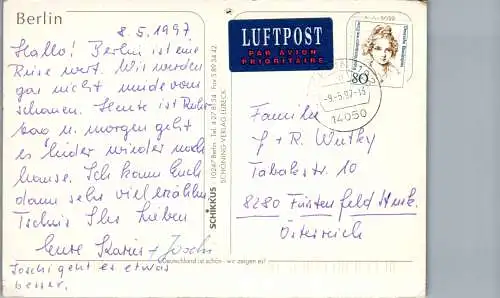 Berlin
8.5.1997
Hallo! Berlin ist eine
Reise wert. Wir werden
gar nicht müde vom
schauen. Heute ist Ruhe-
tag u. morgen geht
es leider wieder nach
hause. Ich kann Euch
dann sehr viel erzählen.
Tschüs Ihr Lieben
Eure Karin + Joschi
Joschi geht es etwas
besser.
SCHIKKUS 10247 Berlin Tel. 4 27 81 54 Fax 5 89 34 42
SCHÖNING-VERLAG LÜBECK
Deutschland ist schön - wir zeigen es!
LUFTPOST
PAR AVION
PRIORITAIRE
Deutsche Bundespost
80
-9.-5.97-15
14050
Familie
J + R Wutky
8280 Fürstenfeld
Österreich